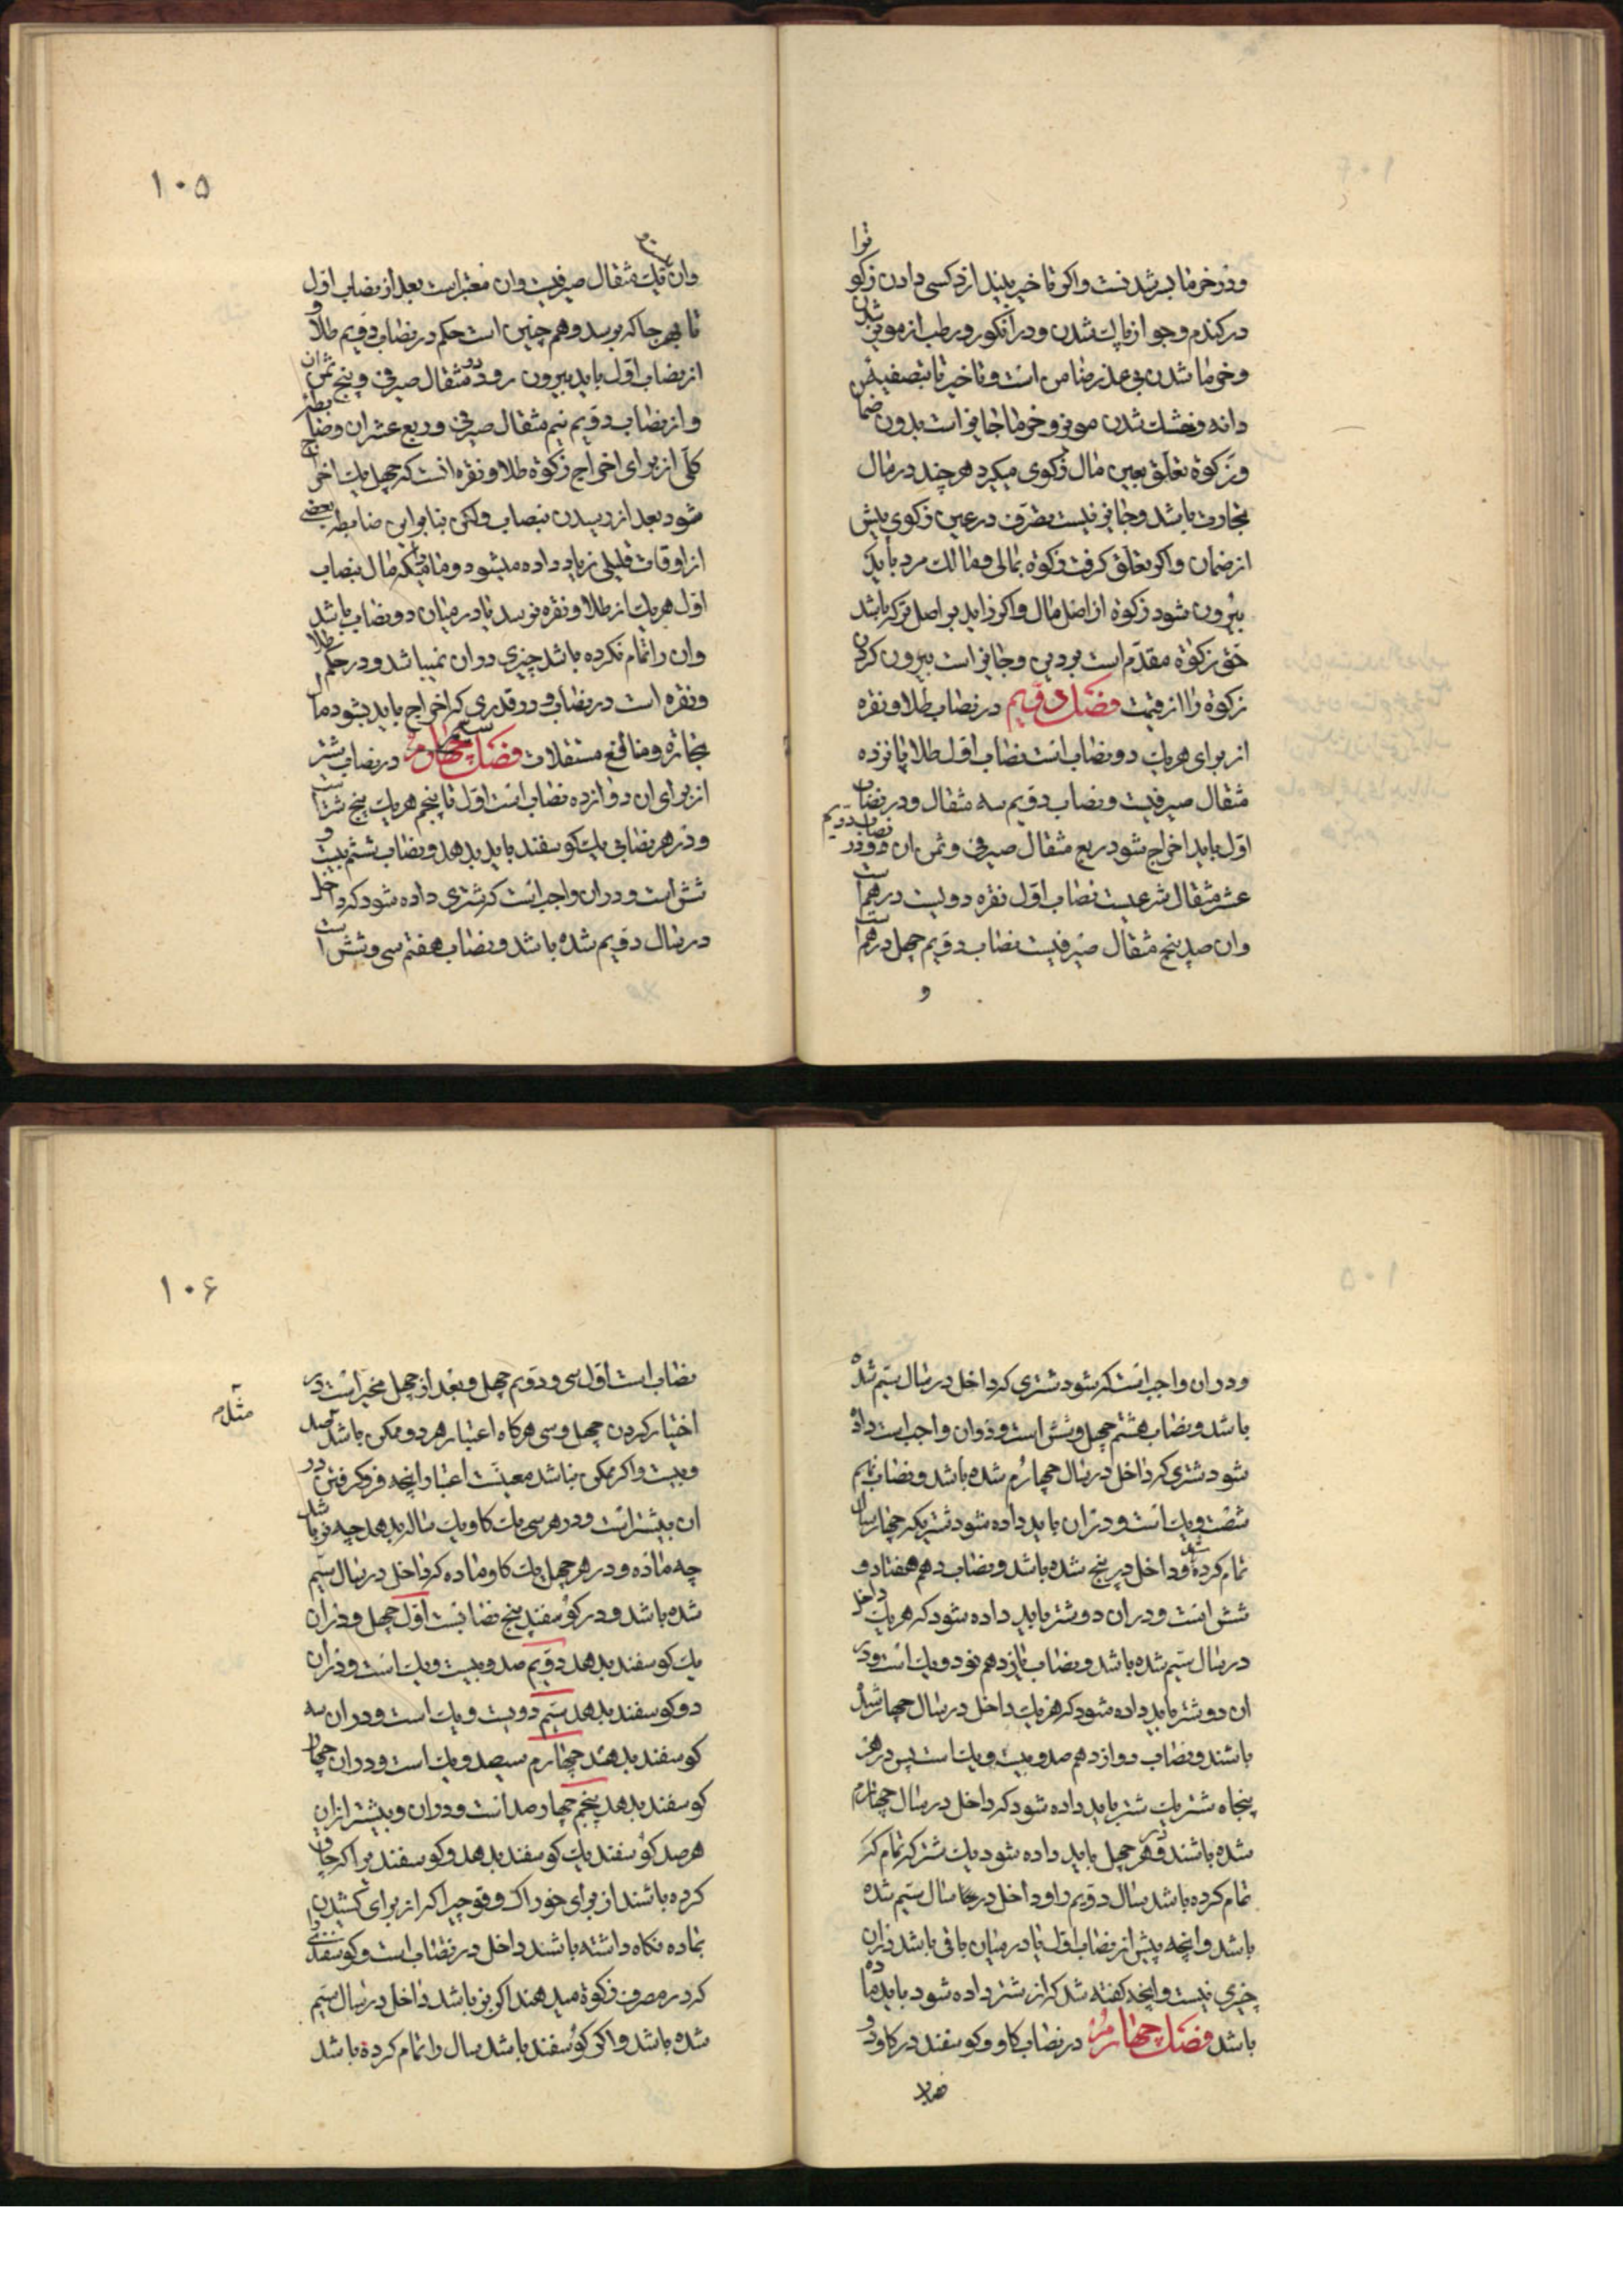 ودر خرما بسر شدنست واکر تاخیر بیندازد کسی دادن زکوة را
در کندم وجو از پاک شدن ودر انکور ورطب از مویز شدن
وخرما شدن بی عذر ضامن است وتاخیر تا تصفیه
دانه وخشک شدن مویز وخرما جایز است بدون ضمان
وزکوة تعلق بعین مال زکوی میکیرد هر چند در مال
تجارت باشد وجایز نیست تصرف در عین زکوی پیش
از ضمان واکر تعلق کرفت زکوة بمالی ومالک مرد باید
بیرون شود زکوة از اصل مال واکر زاید بر اصل ترکه باشد
حق زکوة مقدم است بر دین وجایز است بیرون کردن
زکوة را از قیمت فصل دویم در نصاب طلا ونقره
از برای هر یک دو نصاب است نصاب اول طلا پانزده
مثقال صیرفیست ونصاب دویم سه مثقال ودر نصاب
اول باید اخراج شود ربع مثقال صیرفی وثمن ان ودر نصاب دویم
عشر مثقال شرعیست نصاب اول نقره دویست درهم است
وان صد پنج مثقال صیرفیست نصاب دویم چهل درهم است
و
۱۰۵
وان بیست یک مثقال صیرفیست وان معتبر است بعد از نصاب اول
تا بهر جا که برسد وهم چنین است حکم در نصاب دویم طلا و
از نصاب اول باید بیرون رود دو مثقال صیرفی وپنج ثمن ان
واز نصاب دویم نیم مثقال صیرفی وربع عشر ان وضابطه
کلی از برای اخراج زکوة طلا ونقره انست که چهل یک اخراج
شود بعد از رسیدن بنصاب ولکن بنا بر این ضابطه بعضی
از اوقات قلیلی زیاد داده میشود ومادامیکه مال بنصاب
اول هر یک از طلا ونقره نرسد یا در میان دو نصاب باشد
وان را تمام نکرده باشد چیزی در ان نمیباشد ودر حکم طلا
ونقره است در نصاب ودر قدری که اخراج باید بشود مال
تجارة ومنافع مستقلات فصل سیم چهارم در نصاب شتر
از برای ان دوازده نصاب است اول تا پنجم هر یک پنج شتر است
ودر هر نصابی یک کوسفند باید بدهد ونصاب ششم بیست و
شش است ودر ان واجب است که شتری داده شود که داخل
در سال دویم شده باشد ونصاب هفتم سی وشش است
ودر ان واجب است که شود شتری که داخل در سال سیم شده
باشد ونصاب هشتم چهل وشش است ودر ان واجب است داده
شود شتری که داخل در سال چهارم شده باشد ونصاب نهم
شصت ویک است ودر ان باید داده شود شتریکه چهار سال
تمام کرده وداخل در پنج شده باشد ونصاب دهم هفتاد و
شش است ودر ان دو شتر باید داده شود که هر یک داخل
در سال سیم شده باشد ونصاب یازدهم نود ویک است ودر
ان دو شتر باید داده شود که هر یک داخل در سال چهار شده
باشند ونصاب دوازدهم صد وبیست ویک است پس در هر
پنجاه شتر یک شتر باید داده شود که داخل در سال چهارم
شده باشند ودر هر چهل باید داده شود یک شتر که تمام کر
تمام کرده باشد سال دویم را وداخل در سال سیم شده
باشد وانچه پیش از نصاب اول یا در میان باقی باشد در ان
چیزی نیست وانچه کفته شد که از شتر داده شود باید ماده
باشد فصل چهارم در نصاب کاو وکوسفند در کاو دو
۱۰۶
نصاب است اول سی ودویم چهل وبعد از چهل مخیر است در
اختیار کردن چهل وسی هر کاه اعتبار هر دو ممکن باشد مثل صد
وبیست واکر ممکن نباشد معین است اعتبار انچه فرو کرفتن در
ان بیشتر است ودر هر سی یک کاو یک ساله بدهد چه نر باشد
چه ماده ودر هر چهل یک کاو ماده که داخل در سال سیم
شده باشد ودر کوسفند پنج نصابست اول چهل ودر ان
یک کوسفند بدهد دویم صد وبیست ویک است ودر ان
دو کوسفند بدهد سیم دویست ویک است ودر ان سه
کوسفند بدهد چهارم سیصد ویک است ودر ان چهار
کوسفند بدهد پنجم چهار صد است ودر ان وبیشتر از ان
هر صد کوسفند یک کوسفند بدهد وکوسفند
کرده باشند از برای خوراک وقوچ را اکر از برای کشیدن
بماده نکاه داشته باشند داخل در نصاب است وکوسفندی را
که در مصرف زکوة میدهند اکر بز باشد داخل در سال سیم
شده باشد واکر کوسفند باشد سال را تمام کرده باشد